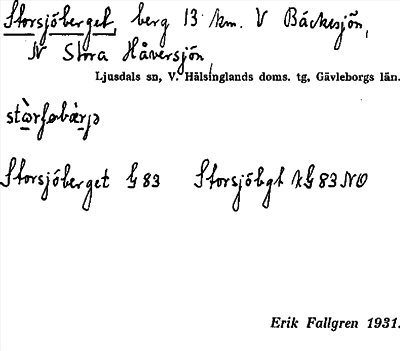 Storsjöberget, berg 13 km. V Bäckesjön,
N Stora Håversjön,
Ljusdals sn, V. Hälsinglands doms. tg, Gävleborgs län.
stòrʃøbàrjə
Storsjöberget G 83 Storsjöbgt kG 83 NO
Erik Fallgren 1931.